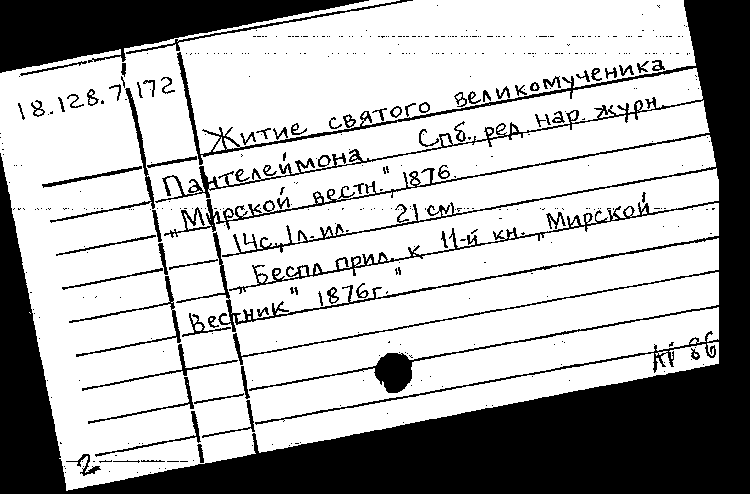 18.128.7.172
Житие святого великомученика
Пантелеймона. Спб., ред. нар. журн.
„Мирской вестн.", 1876.
14с., 1л. ил. 21 см.
„Беспл. прил. к 11-й кн. „Мирской
Вестник" 1876г."
86
2